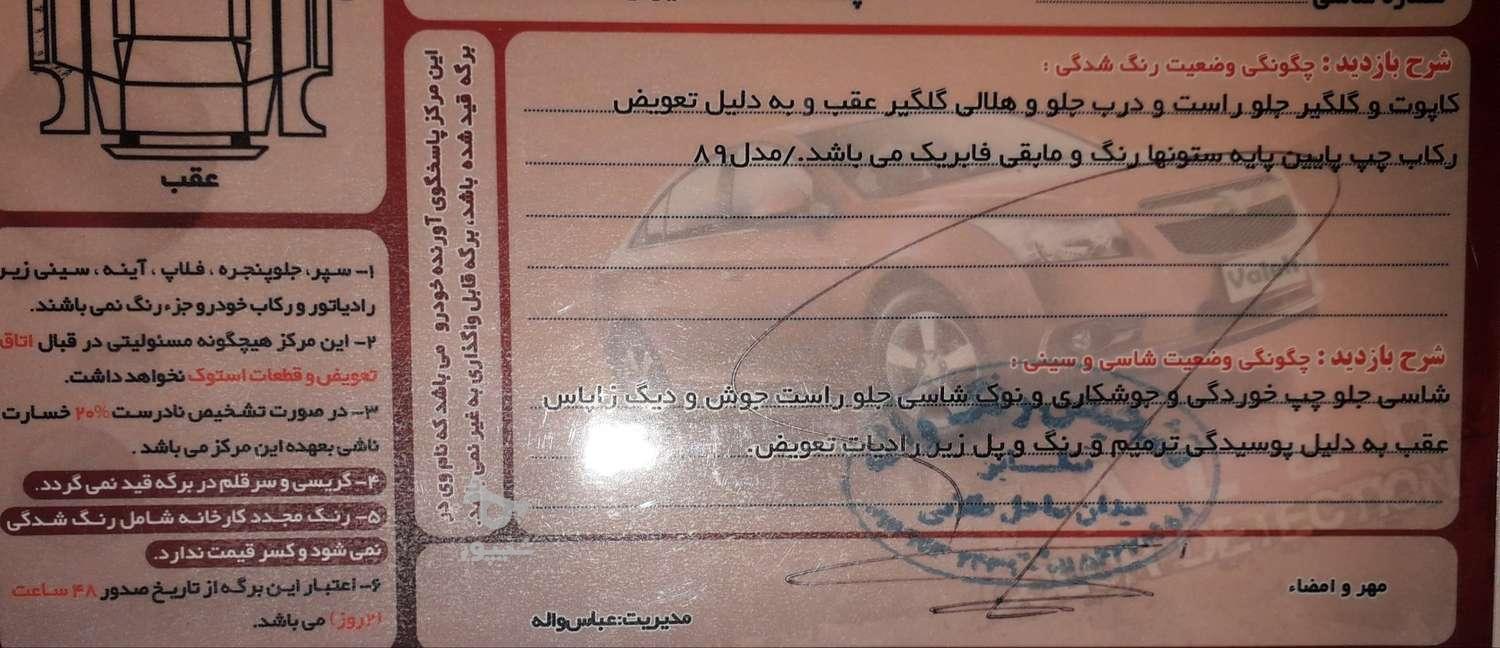 شرح بازدید : چگونگی وضعیت رنگ شدگی :
کاپوت و گلگیر جلو راست و درب جلو و هلالی گلگیر عقب و به دلیل تعویض
رکاب چپ پایین پایه ستونها رنگ و مابقی فابریک می باشد./مدل۸۹
شرح بازدید : چگونگی وضعیت شاسی و سینی :
شاسی جلو چپ خوردگی و جوشکاری و نوک شاسی جلو راست جوش و دیگ زاپاس
عقب به دلیل پوسیدگی ترمیم و رنگ و پل زیر رادیات تعویض.
مهر و امضاء
مدیریت:عباس واله
این مرکز پاسخگوی آورنده خودرو می باشد که نام وی در
برگه قید شده باشد، برگه قابل واگذاری به غیر نمی
عقب
۱- سپر، جلوپنجره ، فلاپ ، آینه ، سینی زیر
رادیاتور و رکاب خودرو جزء رنگ نمی باشند.
۲- این مرکز هیچگونه مسئولیتی در قبال اتاق
تعویض و قطعات استوک نخواهد داشت.
۳- در صورت تشخیص نادرست ۲۰% خسارت
ناشی بعهده این مرکز می باشد .
۴- گریسی و سر قلم در برگه قید نمی گردد.
۵- رنگ مجدد کارخانه شامل رنگ شدگی
نمی شود و کسر قیمت ندارد.
۶- اعتبار این برگه از تاریخ صدور ۴۸ ساعت
(۲روز) می باشد.
Valeh
DETECTION
شیپور